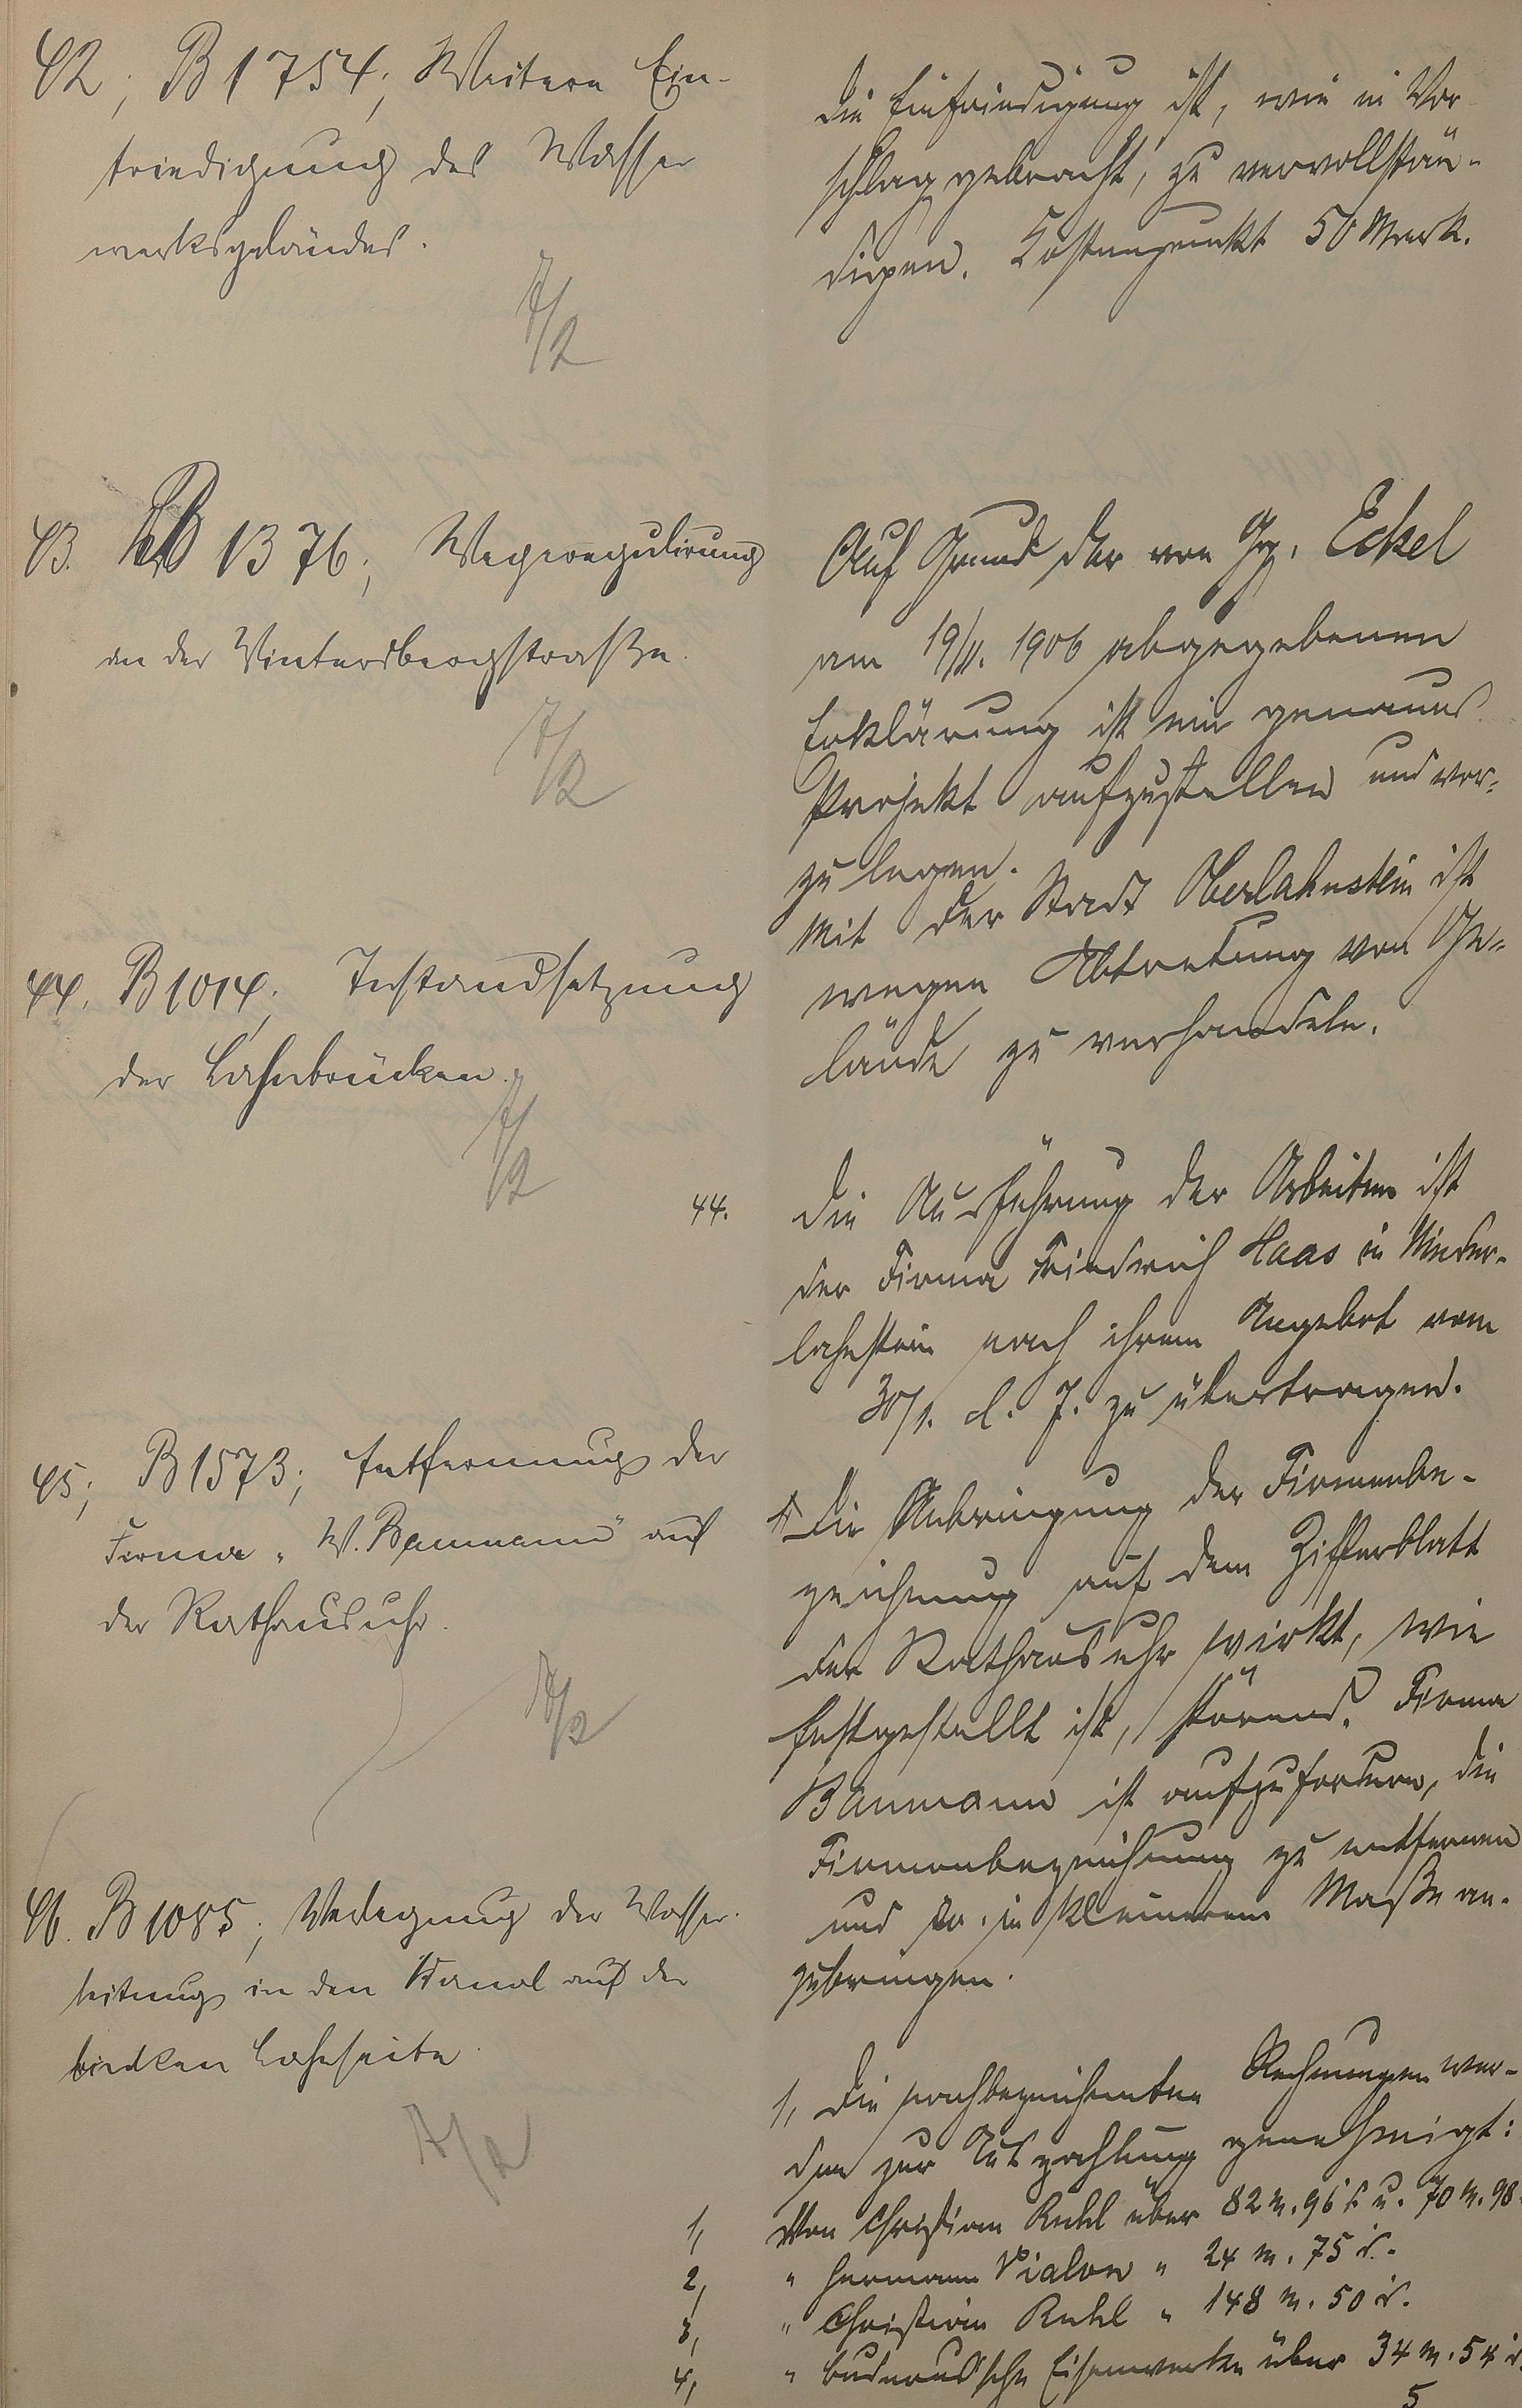 42, B 1754, Weitere Ein-
friedigung des Wasser
werksgeländes.
7/2
Die Einfriedigung ist, wie in Vor
schlag gebracht, zu vervollstän-
digen. Kostenpunkt 50 Mark.
43. B 1376, Wegeregulirung
an der Wintersbergstraße.
7/2
Auf Grund der von Gg. Eckel
am 19/II. 1906 abgegebenen
Erklärung ist ein genaues
Projekt aufzustellen und vor-
zulegen.
Mit der Stadt Oberlahnstein ist
wegen Abtretung von Ge-
lände zu verhandeln.
44. B 1014, Instandsetzung
der Lahnbrücken.
7/2
44.
Die Ausführung der Arbeiten ist
der Firma Friedrich Haas in Nieder-
lahnstein nach ihrem Angebot vom
30/1. d. J. zu übertragen.
45, B 1573, Entfernung der
Firma "W. Baumann" auf
der Rathausuhr.
7/2
Die Anbringung der Firmenbe-
zeichnung auf dem Zifferblatt
der Rathausuhr wirkt, wie
festgestellt ist, störend. Firma
Baumann ist aufzufordern, die
Firmenbezeichnung zu entfernen
und in kleinerem Maße an-
zubringen.
46. B 1085, Verlegung der Wasser-
leitung in den Kanal auf der
linken Lahnseite
7/2
1, Die nachbezeichneten Rechnungen wer-
den zur Auszahlung genehmigt:
1, Von Christian Ruhl über 82 M. 96 d. u. 70 M. 98
2, " Hermann Vialon " 24 M. 75 d.
3, " Christian Ruhl " 148 M. 50 d.
4, " Buderus'sche Eisenwerke über 34 M. 54 d.
5